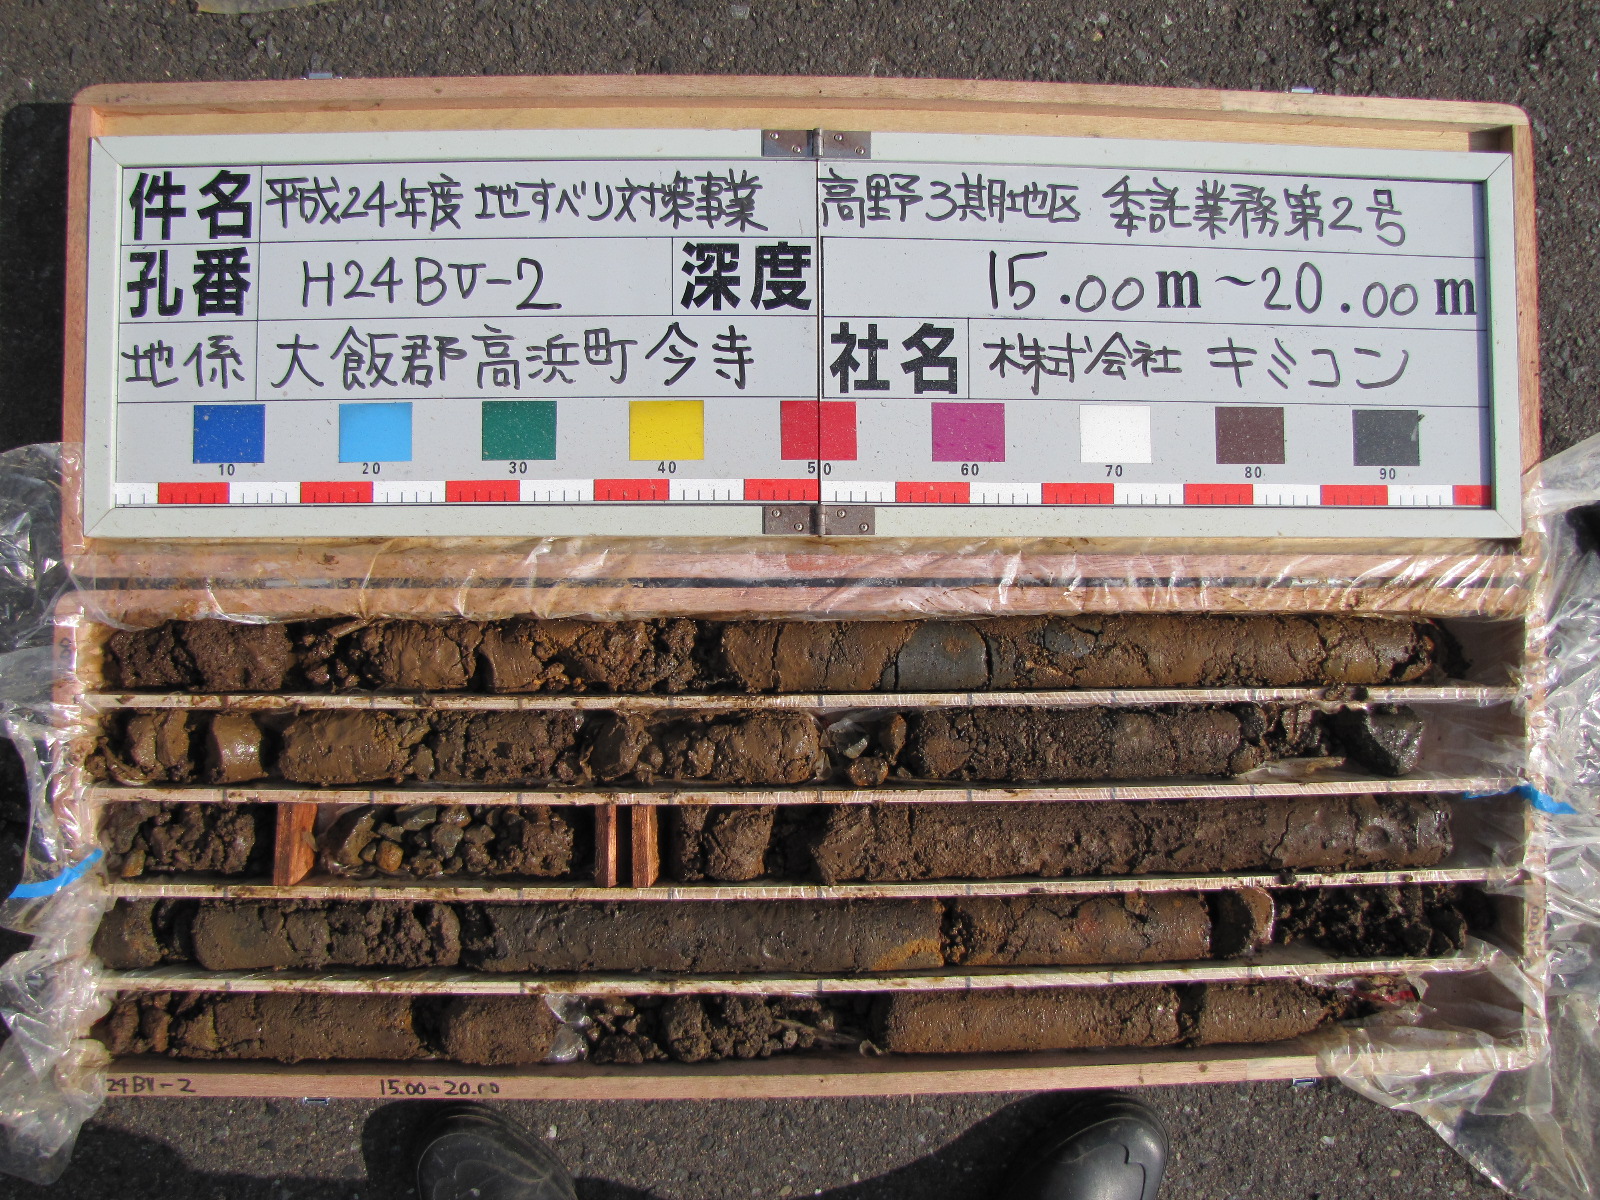 件名 平成24年度 地すべり対策事業 高野3期地区 委託業務第2号
孔番 H24BV-2 深度 15.00m~20.00m
地係 大飯郡高浜町今寺 社名 株式会社 キミコン
10 20 30 40 50 60 70 80 90
24BV-2 15.00-20.00